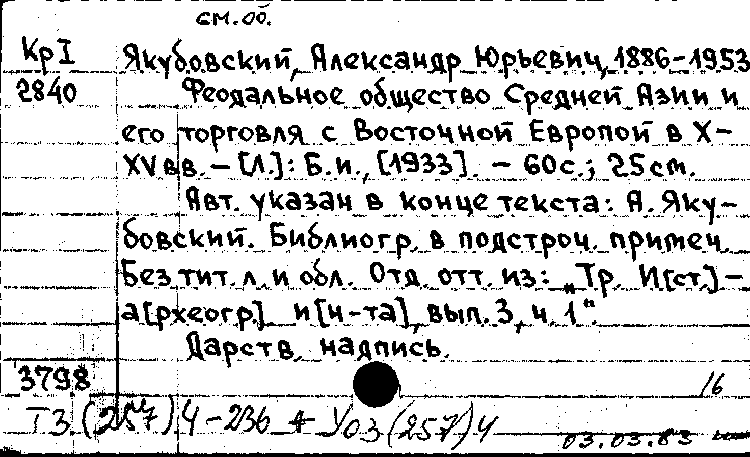 см. об.
Кр I
2840
Якубовский, Александр Юрьевич, 1886-1953
Феодальное общество Средней Азии и
его торговля с Восточной Европой в X-
XV вв. - [Л.]: Б.и., [1933]. - 60 с.; 25 см.
Авт. указан в конце текста: А. Яку-
бовский. Библиогр. в подстроч. примеч.
Без тит. л. и обл. Отд. отт. из: „Тр. И[ст.]-
а[рхеогр.] и[н-та], вып. 3, ч. 1".
Дарств. надпись.
3798
16
Т3(257)4-236 + У03(257)4
03.03.83